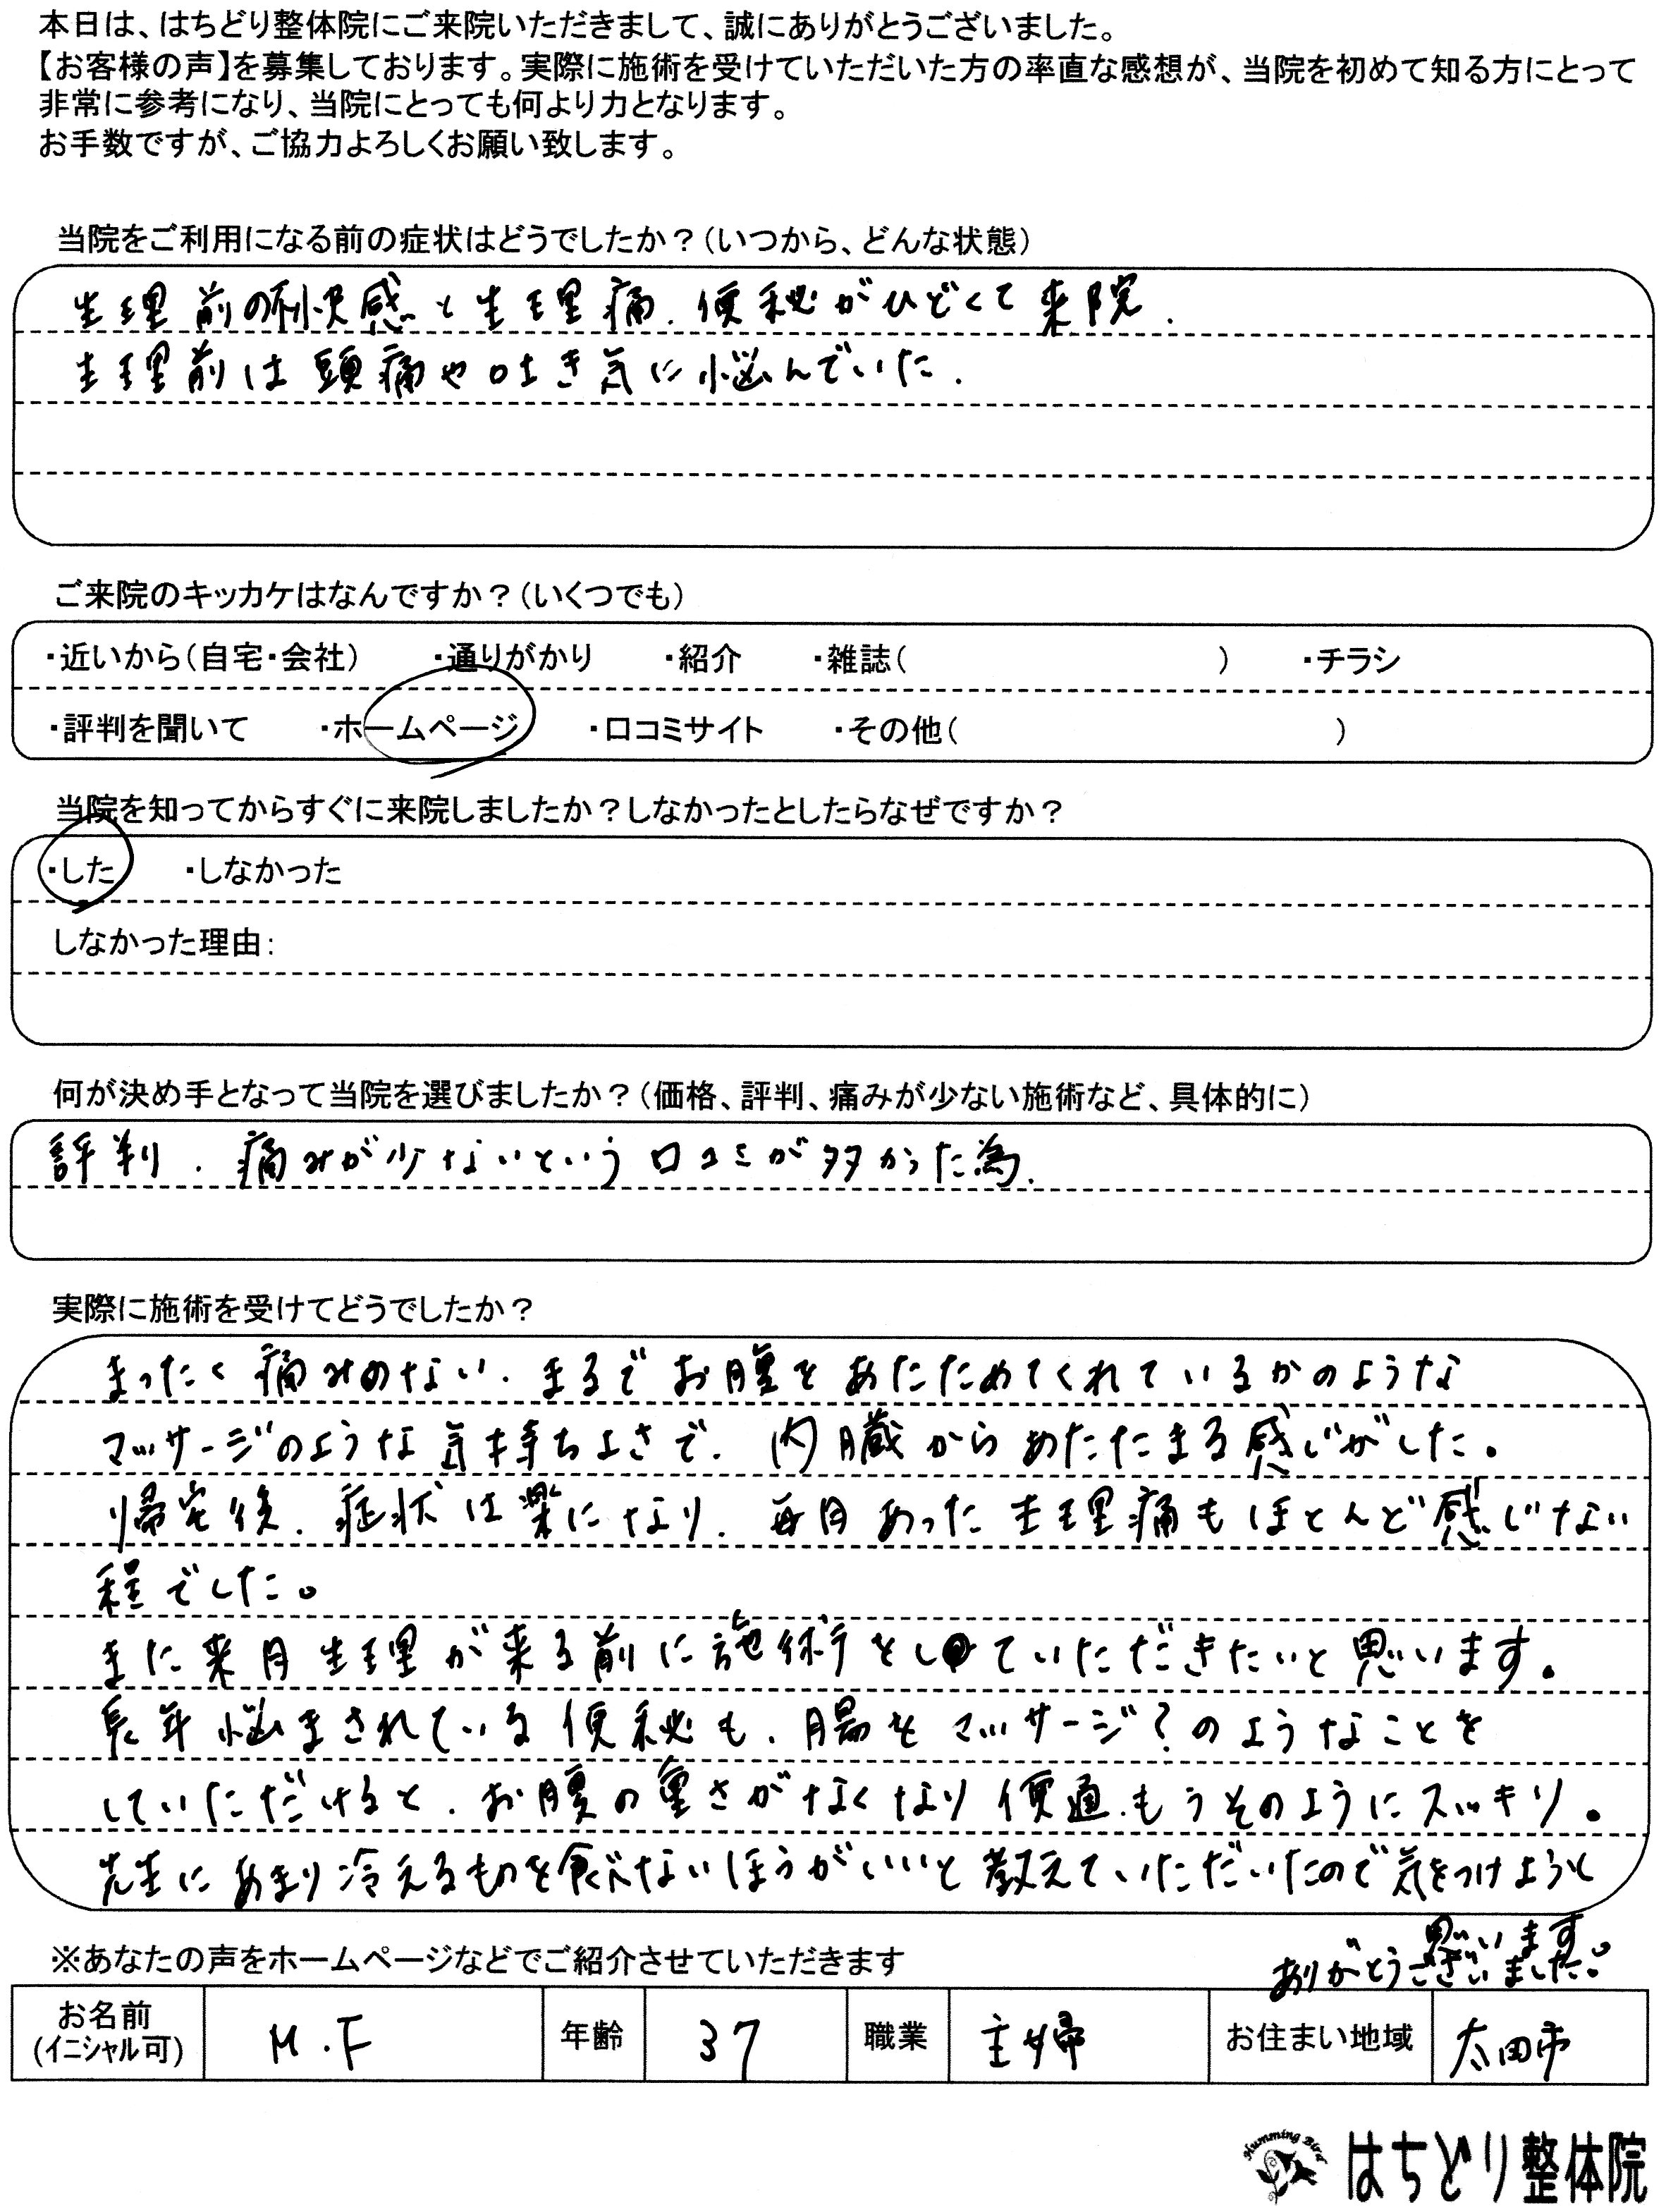 本日は、はちどり整体院にご来院いただきまして、誠にありがとうございました。
【お客様の声】を募集しております。実際に施術を受けていただいた方の率直な感想が、当院を初めて知る方にとって
非常に参考になり、当院にとっても何より力となります。
お手数ですが、ご協力よろしくお願い致します。
当院をご利用になる前の症状はどうでしたか?(いつから、どんな状態)
生理前の不快感と生理痛、便秘がひどくて来院.
生理前は頭痛や吐き気に悩んでいた.
ご来院のキッカケはなんですか?(いくつでも)
・近いから(自宅・会社) ・通りがかり ・紹介 ・雑誌( ) ・チラシ
・評判を聞いて ・ホームページ ・口コミサイト ・その他( )
当院を知ってからすぐに来院しましたか?しなかったとしたらなぜですか?
・した ・しなかった
しなかった理由:
何が決め手となって当院を選びましたか?(価格、評判、痛みが少ない施術など、具体的に)
評判、痛みが少ないという口コミが多かった為.
実際に施術を受けてどうでしたか?
まったく痛みのない、まるでお腹をあたためてくれているかのような
マッサージのような気持ちよさで、内臓からあたたまる感じがした。
帰宅後、症状は楽になり、毎月あった生理痛もほとんど感じない
程でした。
また来月生理が来る前に施術をしていただきたいと思います。
長年悩まされている便秘も、腸をマッサージ?のようなことを
していただけると、お腹の重さがなくなり便通もうそのようにスッキリ。
先生にあまり冷えるものを食べないほうがいいと教えていただいたので気をつけようと
思います。
ありがとうございました。
※あなたの声をホームページなどでご紹介させていただきます
お名前 (イニシャル可) M.F 年齢 37 職業 主婦 お住まい地域 太田市
Humming Bird はちどり整体院